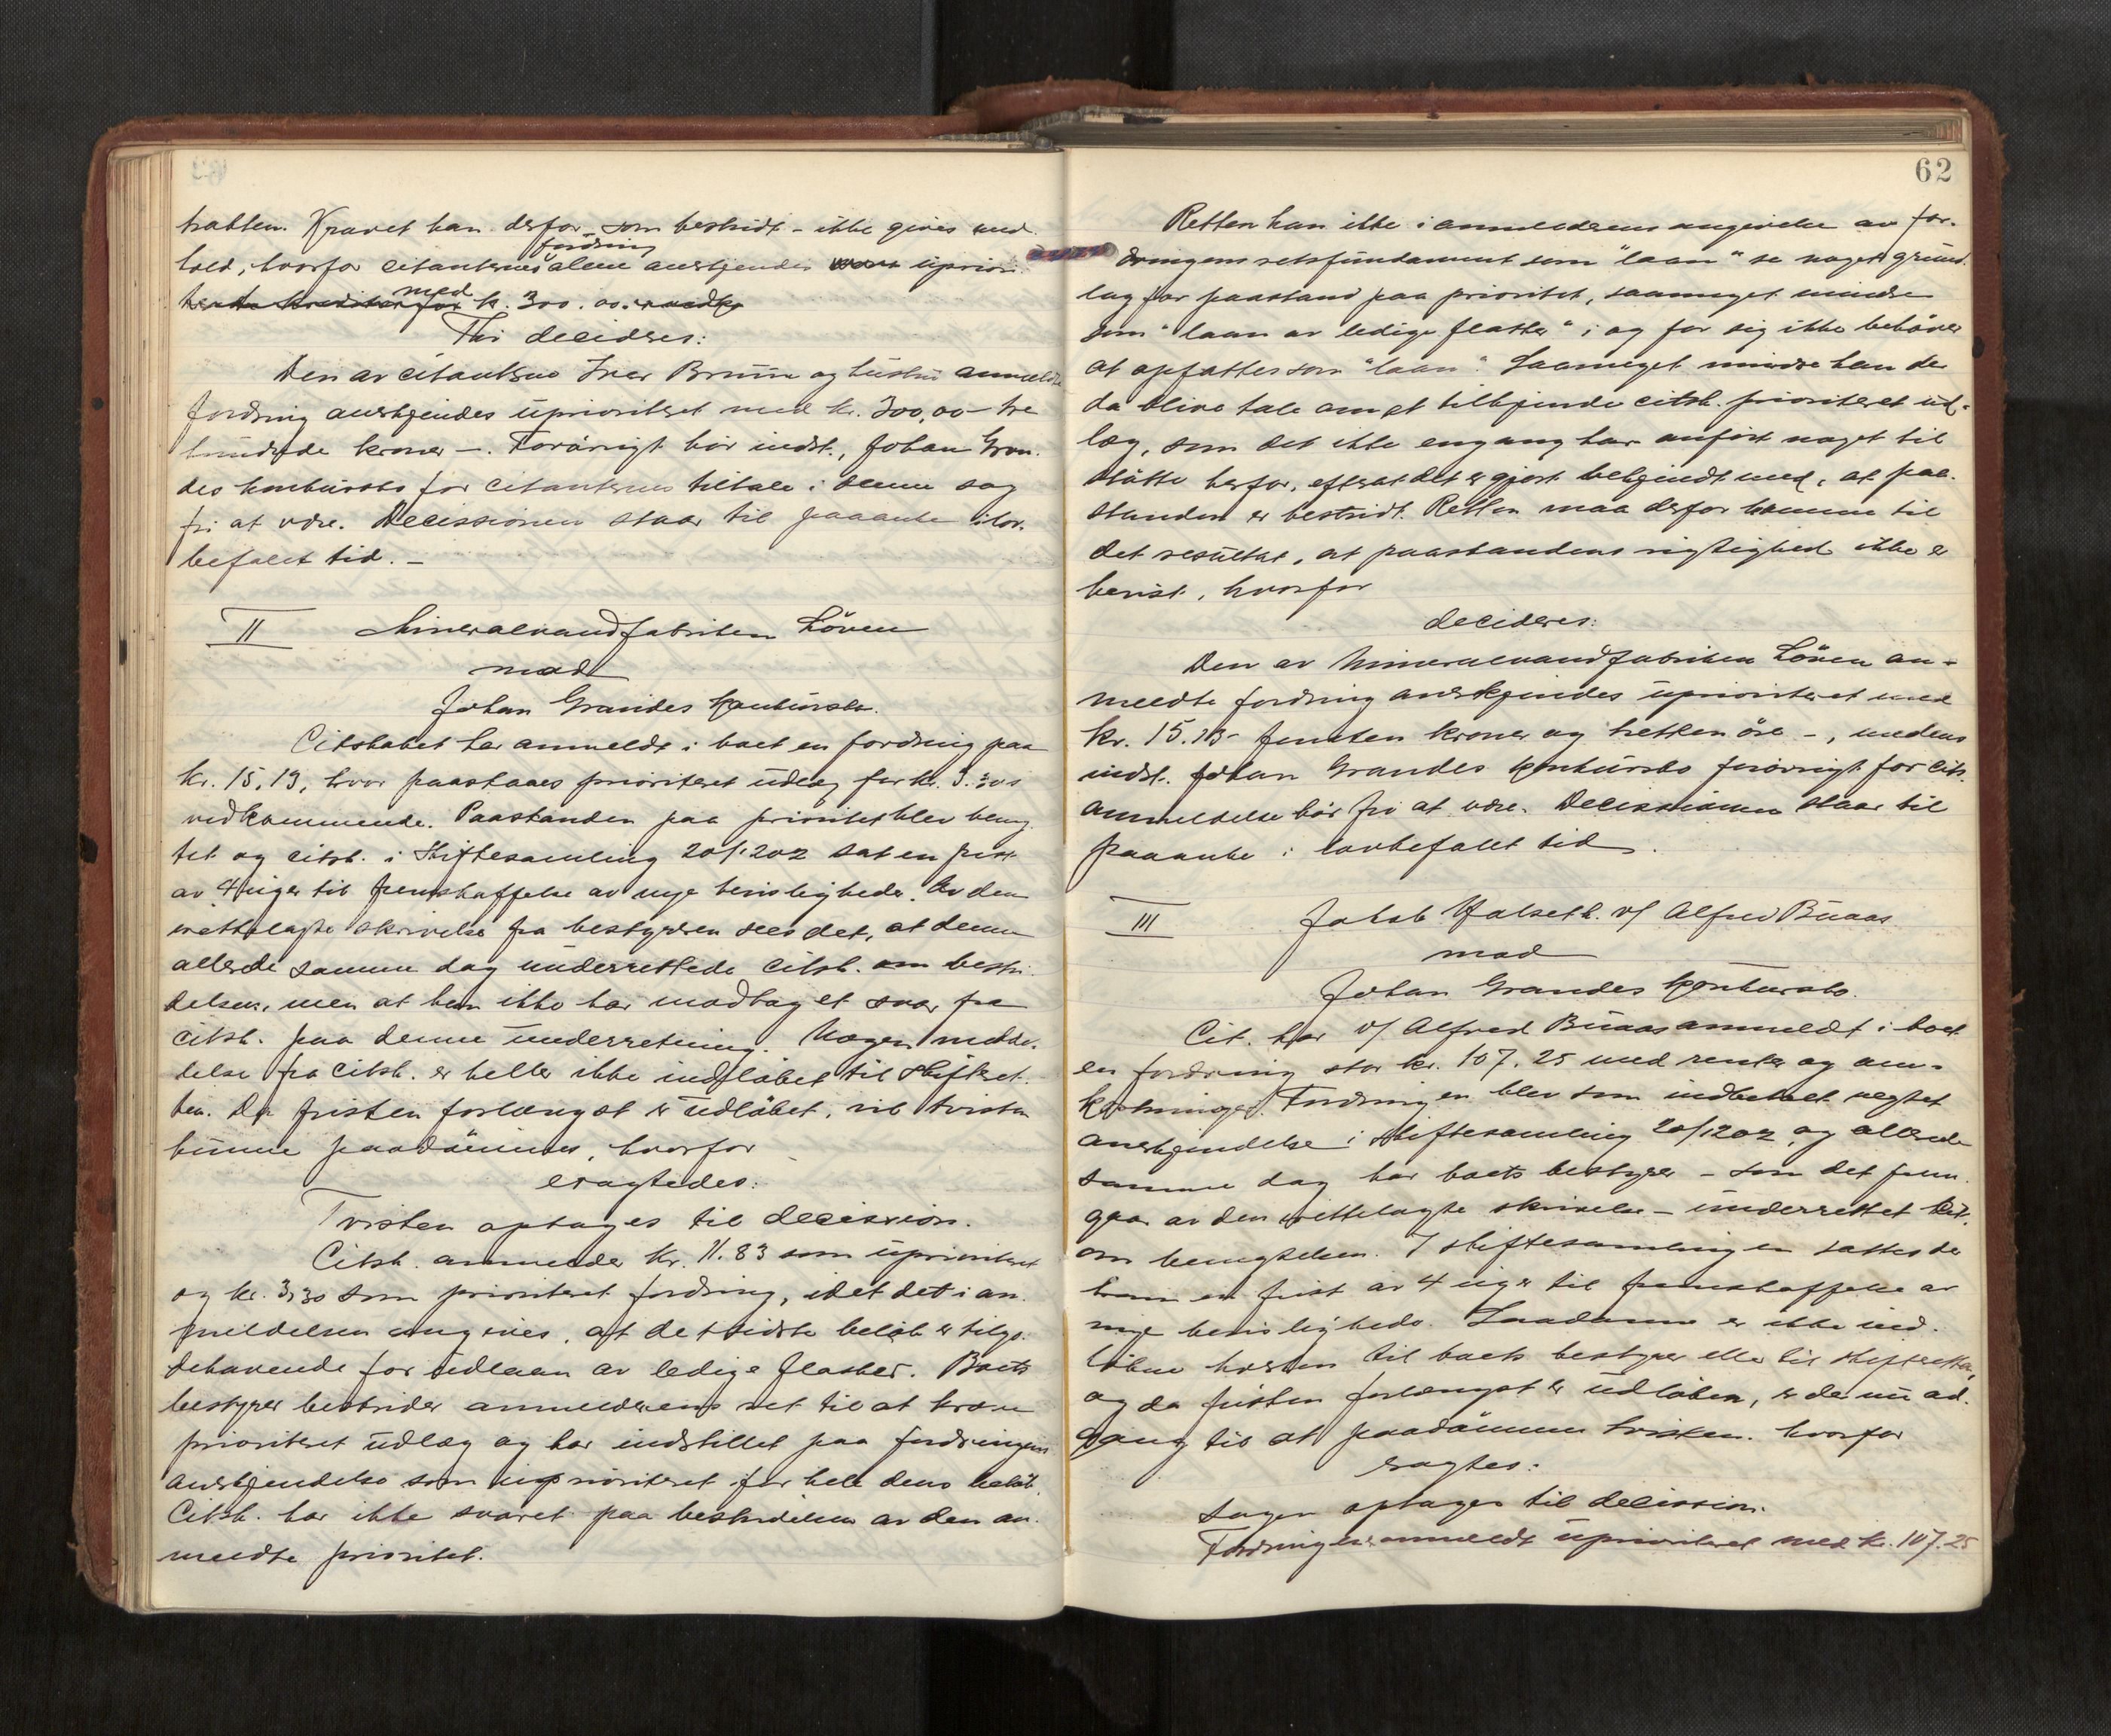 trakten. Kravet kan derfor - som bestridt - ikke gives med
fordring
hold, hvorfor citanternes alene anerkjendes upriori
med
kr. 300.00.
Thi decideres:
Den av citanterne Iver Bruun og hustru anmeldte
fordring anerkjendes uprioritert med kr. 300,00 - tre
hundrede kroner -. Forøvrigt bør indst., Johan Gran-
des konkursbo for citanternes tiltale i denne sag
fri at være. Decissionen staar til paaanke i lov-
befalet tid. -
II Mineralvandfabriken Löven
mod
Johan Grandes konkursbo.
Citskabet har anmeldt i boet en fordring paa
kr. 15,13, hvor paastaaes prioritert udlæg for kr. 3.30s
vedkommende. Paastanden paa prioritet blev beneg
tet og citsk. i skiftesamling 20/1202 sat en frist
av 4 uger til fremskaffelse av nye bevisligheder. Av den
rettelagte skrivelse fra bestyreren sees det, at denne
allerede samme dag underrettede citsk. om bestri
delsen, men at han ikke har modtaget svar fra
citsk. paa denne underretning. Nogen medde-
lelse fra citsk. er heller ikke indløbet til skifteret-
ten. Da fristen forlængst er udløbet, vil tvisten
kunne paadömmes, hvorfor
eragtedes:
Tvisten optages til decission.
Citsk. anmelder kr. 11.83 som uprioritert
og kr. 3,30 som prioritert fordring, idet det i an
meldelsen angives, at det sidste beløb er tilgo-
dehavende for udlaan av ledige flasker. Boets
bestyrer bestrider anmelderens ret til at kræve
prioritert udlæg og har indstillet paa fordringens
anerkjendelse som uprioritert for hele dens beløb.
Citsk. har ikke svaret paa bestridelsen av den an-
meldte prioritet.
62
Retten kan ikke i anmelderens angivelse av for-
dringens retsfundament som "laan" se noget grund-
lag for paastand paa prioritet, saameget mindre
som "laan av ledige flasker" i og for sig ikke behöver
at opfattes som "laan". Saameget mindre kan der
da blive tale om at tilkjende citsk. prioritert ud-
læg, som det ikke engang har anført noget til
støtte herfor, efterat det er gjort bekjendt med, at paa-
standen er bestridt. Retten maa derfor komme til
det resultat, at paastandens rigtighed ikke er
bevist, hvorfor
decideres:
Den av Mineralvandfabriken Löven an-
meldte fordring anerkjendes uprioritert med
kr. 15.13 - femten kroner og tretten öre -, medens
indst. Johan Grandes konkursbo forøvrigt for cits.
anmeldelse bör fri at være. Decissionen staar til
paaanke i lovbefalet tid.
III Jakob Halseth v/ Alfred Buaas
mod
Johan Grandes konkursbo.
Cit. har v/ Alfred Buaas anmeldt i boet
en fordring stor kr. 107.25 med renter og om-
kostninger. Fordringen blev som indbetalt negtet
anerkjendelse i skiftesamling 20/1202, og allerede
samme dag har boets bestyrer - som det frem-
gaar av den rettelagte skrivelse - underrettet Cit.
om benegtelsen. I skiftesamlingen sattes der
ham en frist av 4 uger til fremskaffelse av
nye bevisligheder. Saadanne er ikke ind-
løbne hverken til boets bestyrer eller til skifteretten,
og da fristen forlængst er udløben, er der nu ad-
gang til at paadömme tvisten. hvorfor
eragtes:
Sagen optages til decission.
Fordringen er anmeldt uprioritert med kr. 107.25